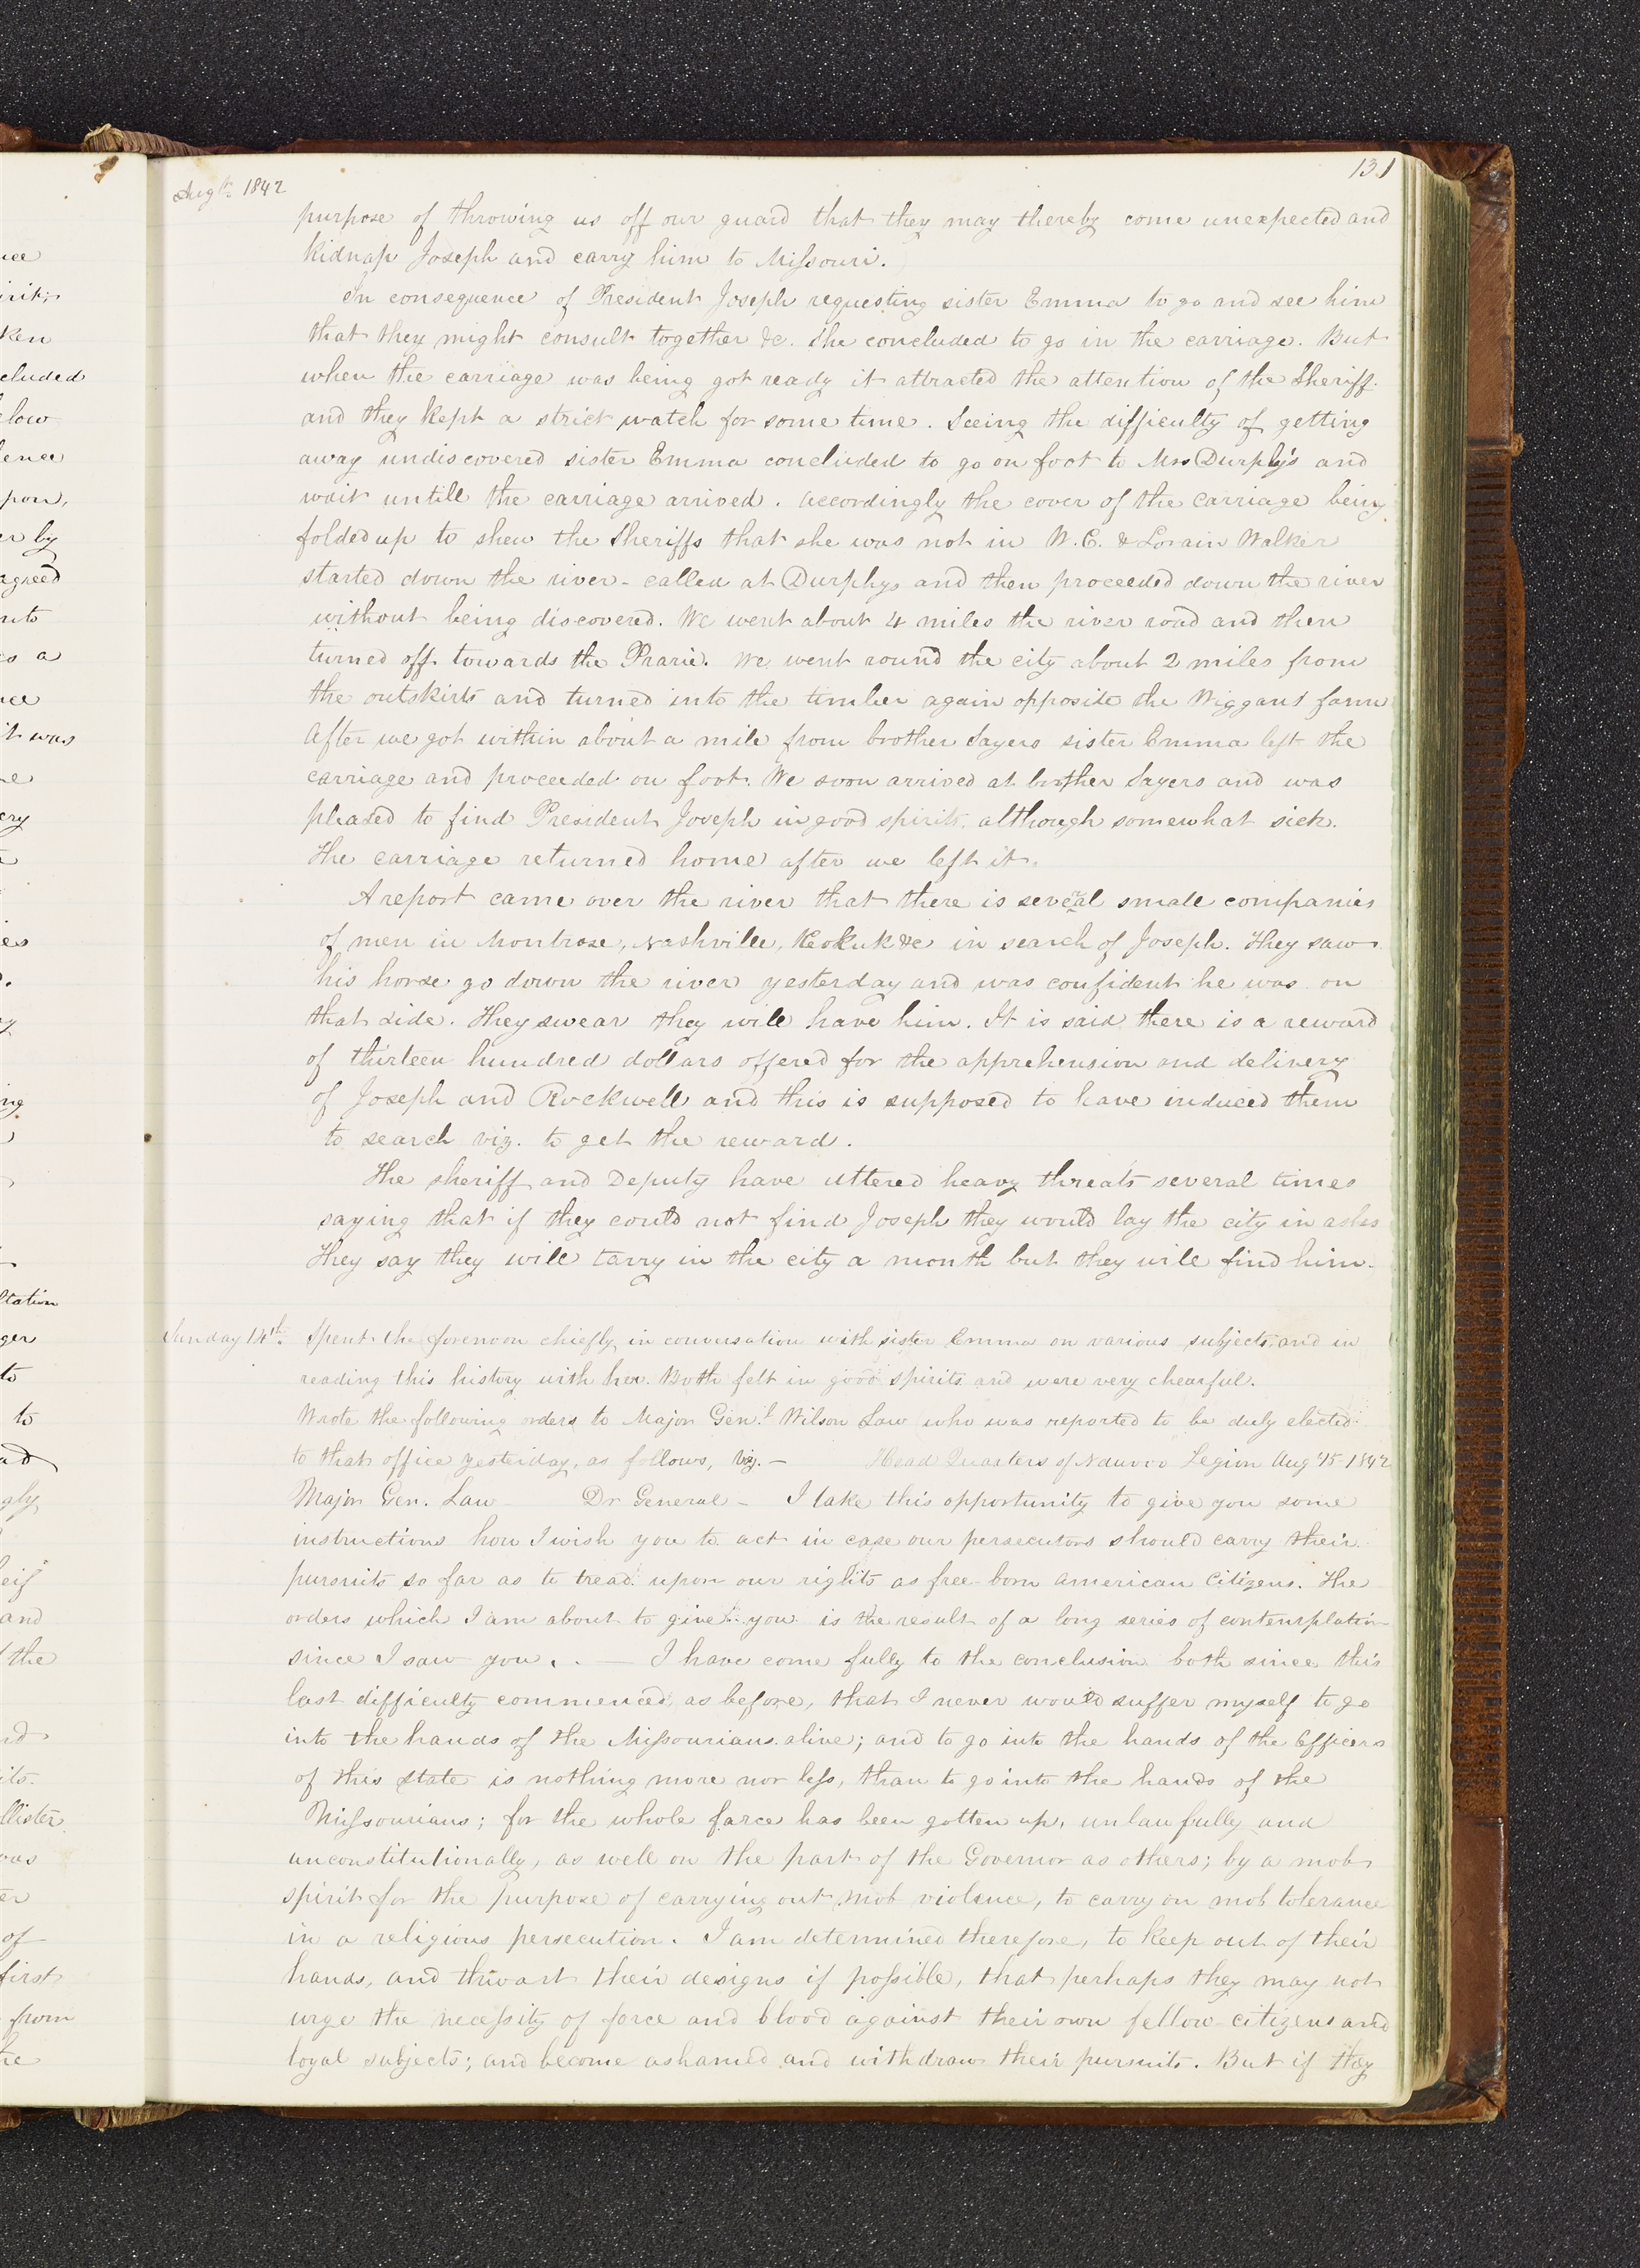 131
Augst. 1842
purpose of throwing us off our guard that they may thereby come unexpected and
kidnap Joseph and carry him to Missouri.
In consequence of President Joseph requesting sister Emma to go and see him
that they might consult together &c. She concluded to go in the carriage. But
when the carriage was being got ready it attracted the attention of the Sheriff
and they kept a strict watch for some time. Seeing the difficulty of getting
away undiscovered sister Emma concluded to go on foot to Mrs Durphy's and
wait untill the carriage arrived. Accordingly the cover of the carriage being
folded up to shew the Sheriffs that she was not in W. C. & Lorain Walker
started down the river - called at Durphys and then proceeded down the river
without being discovered. We went about 4 miles the river road and then
turned off towards the Prarie. We went round the city about 2 miles from
the outskirts and turned into the timber again opposite the Wiggans farm
After we got within about a mile from brother Sayers sister Emma left the
carriage and proceeded on foot. We soon arrived at brother Sayers and was
pleased to find President Joseph in good spirits, although somewhat sick.
The carriage returned home after we left it.
A report came over the river that there is several small companies
of men in Montrose, Nashville, Keokuk &c in search of Joseph. They saw
his horse go down the river yesterday and was confident he was on
that side. They swear they will have him. It is said there is a reward
of thirteen hundred dollars offered for the apprehension and delivery
of Joseph and Rockwell and this is supposed to have induced them
to search viz. to get the reward.
The sheriff and Deputy have uttered heavy threats several times
saying that if they could not find Joseph they would lay the city in ashes
They say they will tarry in the city a month but they will find him.
Sunday 14th. Spent the forenoon chiefly in conversation with sister Emma on various subjects, and in
reading this history with her. Both felt in good spirits and were very chearful.
Wrote the following orders to Major Genl. Wilson Law who was reported to be duly elected
to that office yesterday, as follows, viz. — Head Quarters of Nauvoo Legion Aug 15 1842
Major Gen. Law - Dr General - I take this opportunity to give you some
instructions how I wish you to act in case our persecutors should carry their
pursuits so far as to tread upon our rights as free-born American Citizens. The
orders which I am about to give you is the result of a long series of contemplation
since I saw you. — I have come fully to the conclusion both since this
last difficulty commenced, as before, that I never would suffer myself to go
into the hands of the Missourians alive; and to go into the hands of the Officers
of this State is nothing more nor less, than to go into the hands of the
Missourians; for the whole farce has been gotten up, unlawfully and
unconstitutionally, as well on the part of the Governor as others; by a mob
spirit for the purpose of carrying out mob violence, to carry on mob tolerance
in a religious persecution. I am determined therefore, to keep out of their
hands, and thwart their designs if possible, that perhaps they may not
urge the necessity of force and blood against their own fellow-citizens and
loyal subjects; and become ashamed and withdraw their pursuits. But if they